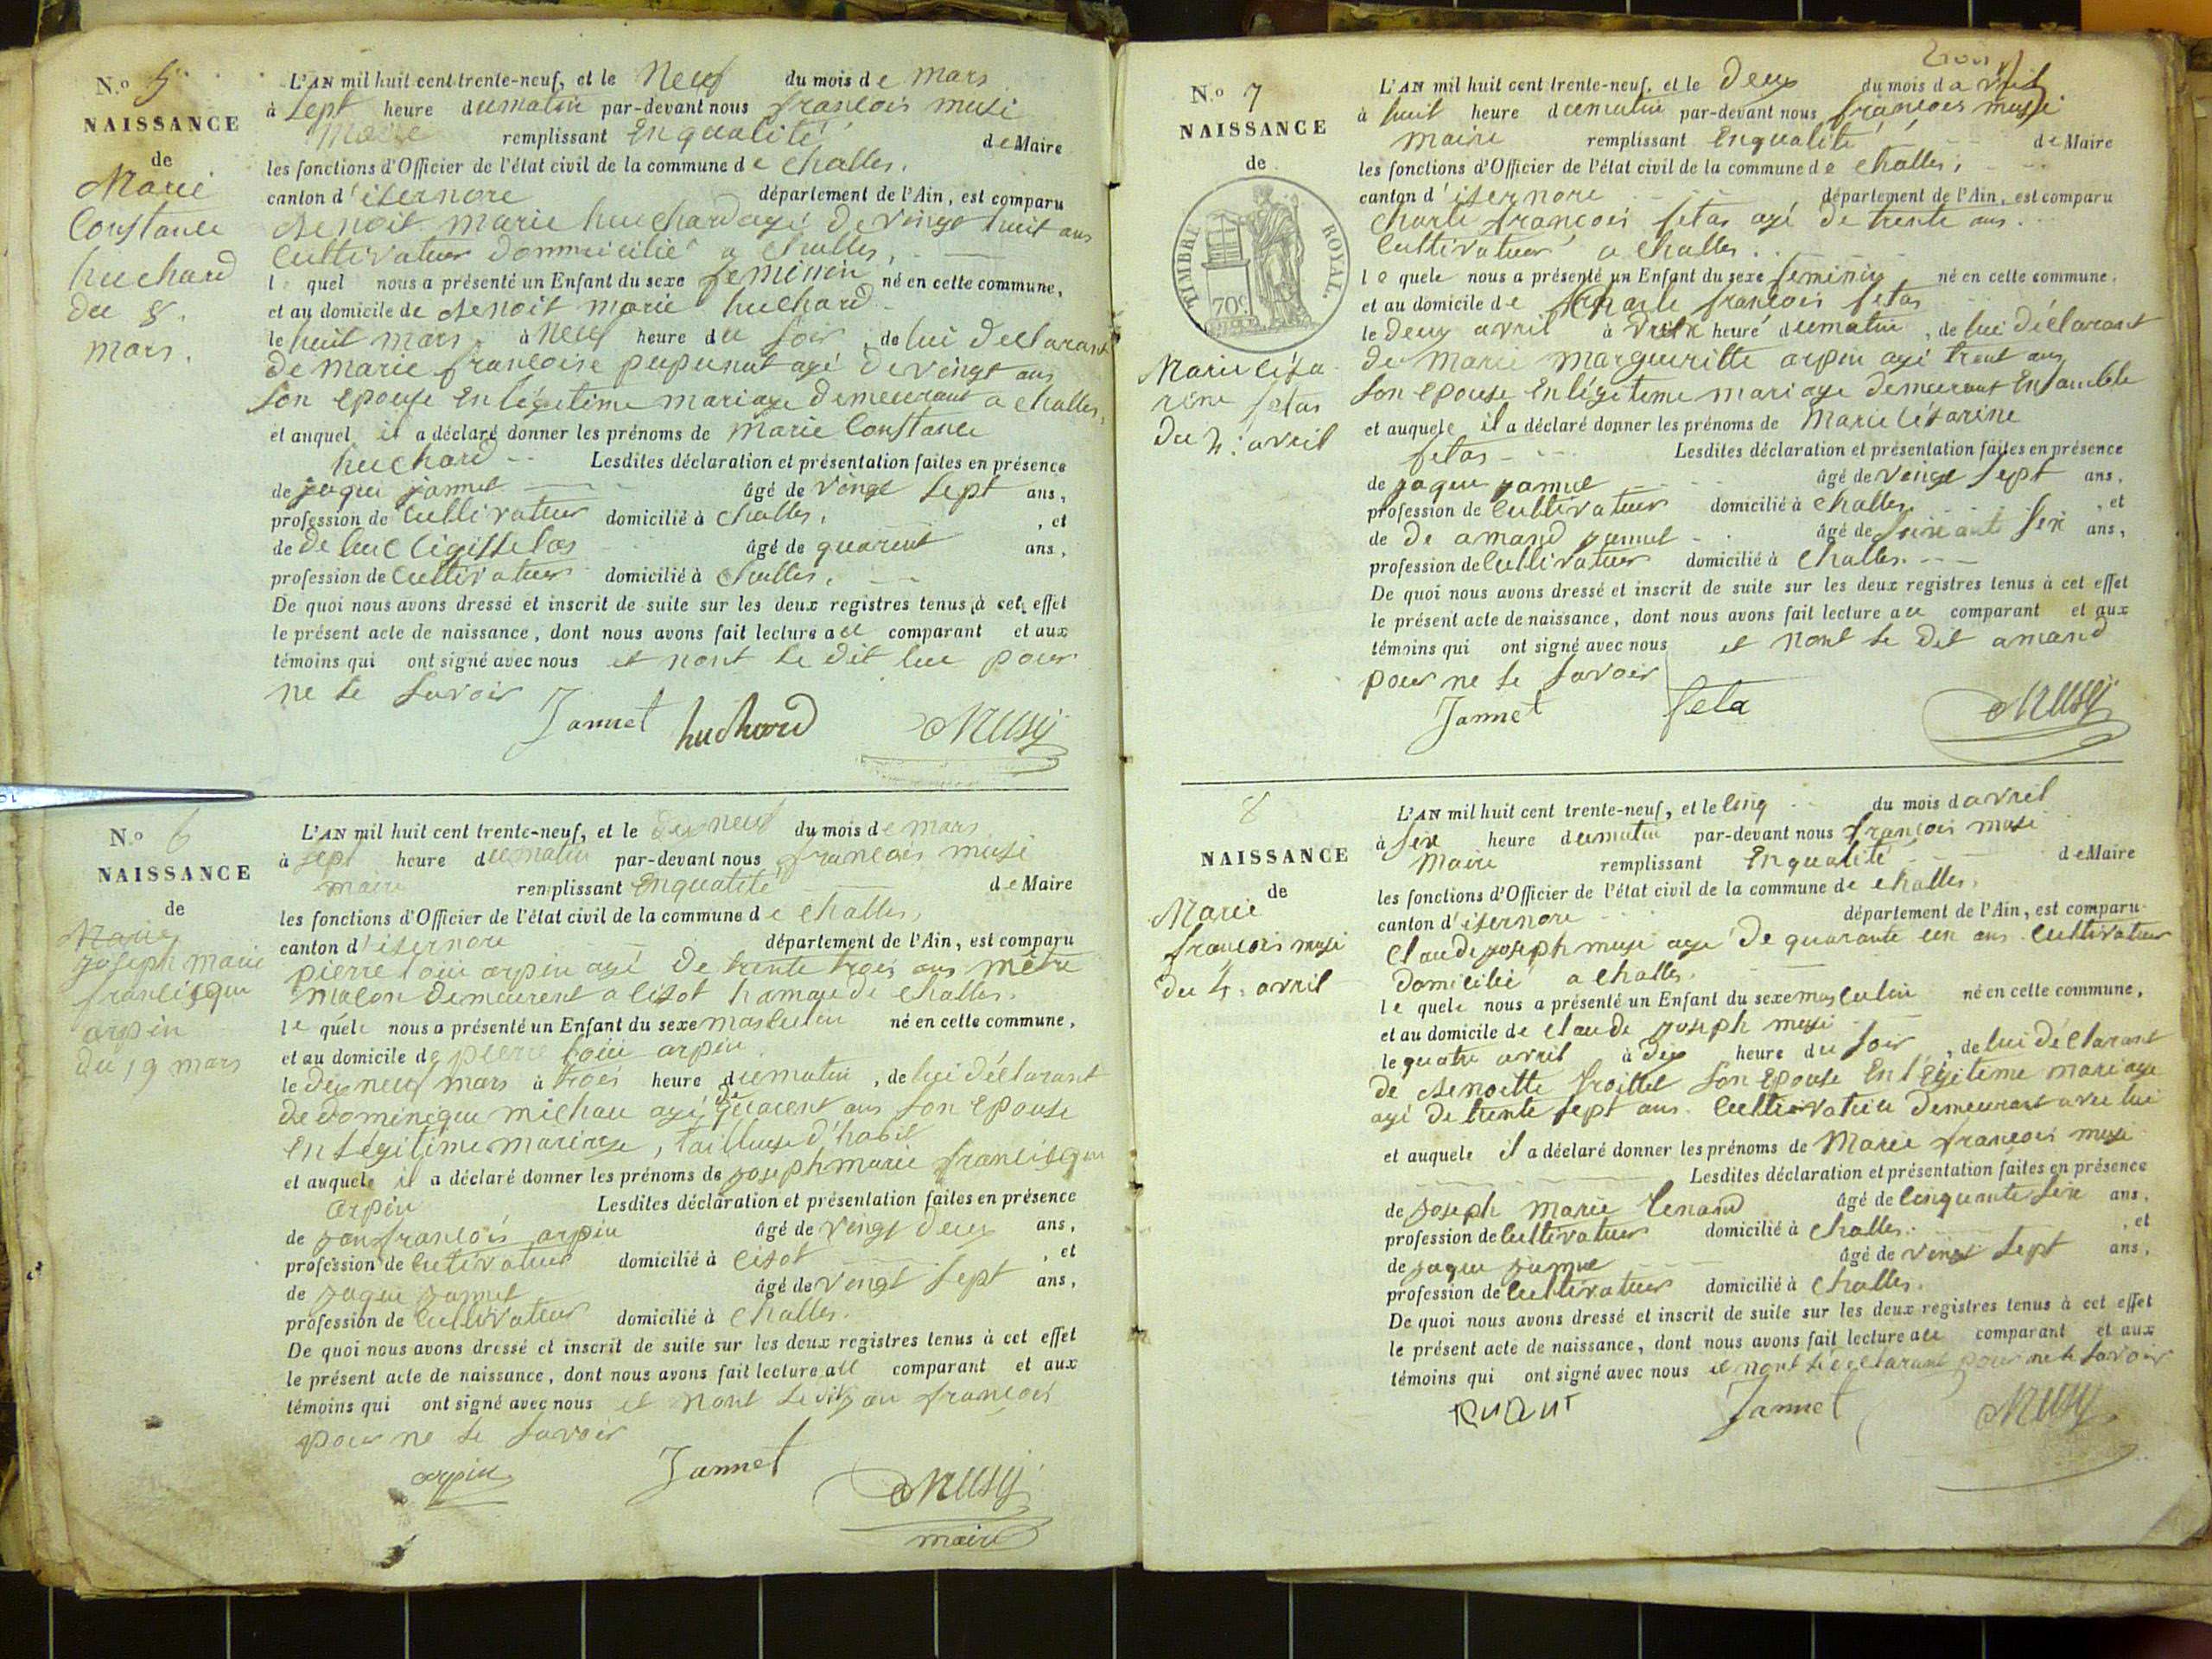 N.º 5
NAISSANCE
de
Marie
Constance
huchard
du 8.
mars.
L'AN mil huit cent trente-neuf, et le Neuf du mois de mars
à sept heure dumatin par-devant nous françois musi
Maire remplissant Enqualité de Maire
les fonctions d'Officier de l'état civil de la commune de Challes,
canton d'isernore département de l'Ain, est comparu
Benoit marie huchard agé de vingt huit ans
Cultivateur dommicilié a Challes,
l quel nous a présenté un Enfant du sexe feminin né en cette commune,
et au domicile de Benoit marie huchard
le huit mars, à neuf heure du soir, de lui déclarant
de marie françoise pupunat agé de vingt ans
son epouse En légetime mariage demeurant a challes,
et auquel il a déclaré donner les prénoms de Marie Constance
huchard -- Lesdites déclaration et présentation faites en présence
de jaque jannet âgé de vingt sept ans,
profession de Cultivateur domicilié à Challes, , et
de De luc ligisse âgé de quarent ans,
profession de Cultivateur domicilié à Challes,
De quoi nous avons dressé et inscrit de suite sur les deux registres tenus à cet effet
le présent acte de naissance, dont nous avons fait lecture au comparant et aux
témoins qui ont signé avec nous et nont le dit luc pour
ne le savoir
Jannet huchard Musy
N.º 6
NAISSANCE
de
Marie
joseph marie
francisque
arpin
du 19 mars
L'AN mil huit cent trente-neuf, et le dix neuf du mois de mars
à sept heure dumatin par-devant nous françois musi
maire remplissant Enqualité de Maire
les fonctions d'Officier de l'état civil de la commune de Challes,
canton d'isernore département de l'Ain, est comparu
pierre loui arpin agé de trente trois ans mètre
maçon demeurent a cisot hamaude challes.
le quele nous a présenté un Enfant du sexe masculin né en cette commune,
et au domicile de pierre loui arpin
le dix neuf mars à trois heure dumatin, de lui déclarant
de domineque michau agé de quarent ans son epouse
en Légitime mariage, tailleuse d'habit
et auquele il a déclaré donner les prénoms de joseph marie francisque
arpin Lesdites déclaration et présentation faites en présence
de jan françois arpin âgé de vingt deux ans,
profession de Cutivateur domicilié à cisot , et
de jaque jamet âgé de vingt sept ans,
profession de Cultivateur domicilié à Challes.
De quoi nous avons dressé et inscrit de suite sur les deux registres tenus à cet effet
le présent acte de naissance, dont nous avons fait lecture au comparant et aux
témoins qui ont signé avec nous et nont le dit jan françois
pour ne le savoir
arpin Jannet Musy
maire
N.º 7
NAISSANCE
de
TIMBRE ROYAL.
70c
Marie céza
rine fetas
du 2. avril
trois
L'AN mil huit cent trente-neuf, et le deux du mois d avril
à huit heure dumatin par-devant nous françois musi
maire remplissant Enqualité de Maire
les fonctions d'Officier de l'état civil de la commune de Challes,
canton d'isernore département de l'Ain, est comparu
Charle françois fetas agé de trente ans.
Cultivateur a Challes.
le quele nous a présenté un Enfant du sexe feminin né en cette commune.
et au domicile de Charle françois fetas
le deux avril à heure dumatin, de lui déclarant
de marie margueritte arpin agé trent ans
son epouse En légiteme mariage demeurant Ensamble
et auquele il a déclaré donner les prénoms de Marie Césarine
fetas -- Lesdites déclaration et présentation faites en présence
de jaque jannet âgé de vingt sept ans,
profession de Cultivateur domicilié à Challes. , et
de De amand jamet âgé de soixante six ans,
profession de Cultivateur domicilié à Challes.
De quoi nous avons dressé et inscrit de suite sur les deux registres tenus à cet effet
le présent acte de naissance, dont nous avons fait lecture au comparant et aux
témoins qui ont signé avec nous et nont le dit amand
pour ne le savoir
Jannet feta Musy
8
NAISSANCE
de
Marie
françois musi
du 4. avril
L'AN mil huit cent trente-neuf, et le cinq du mois d avril
à six heure dumatin par-devant nous françois musi
Maire remplissant Enqualité de Maire
les fonctions d'Officier de l'état civil de la commune de challes,
canton d'isernore département de l'Ain, est comparu
Claude joseph musi agé de quarante un ans Cultivateur
domicilié a challes.
le quele nous a présenté un Enfant du sexe masculin né en cette commune,
et au domicile de claude joseph musi
le quatre avril à dix heure du soir, de lui déclarant
de Benoitte troillet son epouse En légitime mariage
agé de trente sept ans. Cultivatrice demeurant avec lui
et auquele il a déclaré donner les prénoms de Marie françois musi
Lesdites déclaration et présentation faites en présence
de joseph marie tenand âgé de Cinquante six ans,
profession de Cultivateur domicilié à Challes. , et
de jaque jamet âgé de vingt sept ans,
profession de Cultivateur domicilié à Challes.
De quoi nous avons dressé et inscrit de suite sur les deux registres tenus à cet effet
le présent acte de naissance, dont nous avons fait lecture au comparant et aux
témoins qui ont signé avec nous et nont le déclarant pour ne le savoir
Jannet Musy